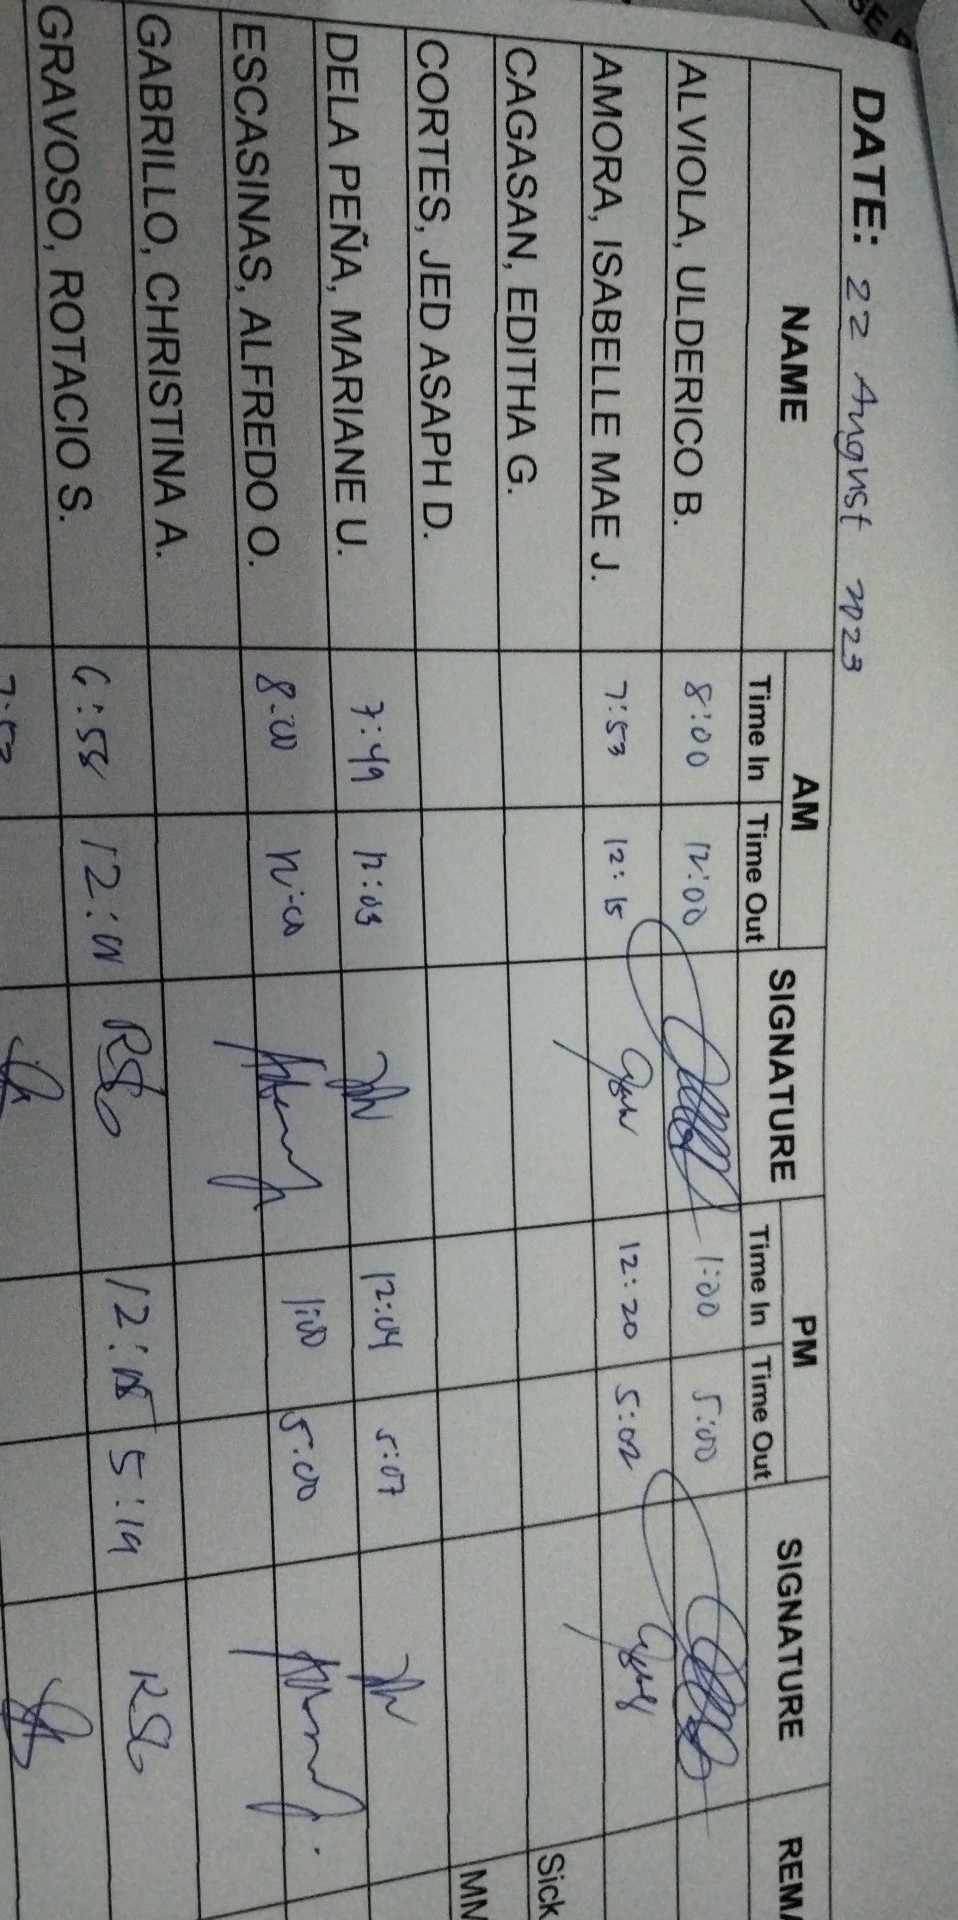 DATE: 22 August 2023
NAME AM SIGNATURE PM SIGNATURE
Time In Time Out Time In Time Out
ALVIOLA, ULDERICO B. 8:00 12:00 1:00 5:00
AMORA, ISABELLE MAE J. 7:53 12:15 12:20 5:02
CAGASAN, EDITHA G. Sick
CORTES, JED ASAPH D.
DELA PEÑA, MARIANE U. 7:49 12:03 12:04 5:07
ESCASINAS, ALFREDO O. 8:00 12:00 1:00 5:00
GABRILLO, CHRISTINA A.
GRAVOSO, ROTACIO S. 6:58 12:01 RSG 5:19 RSG